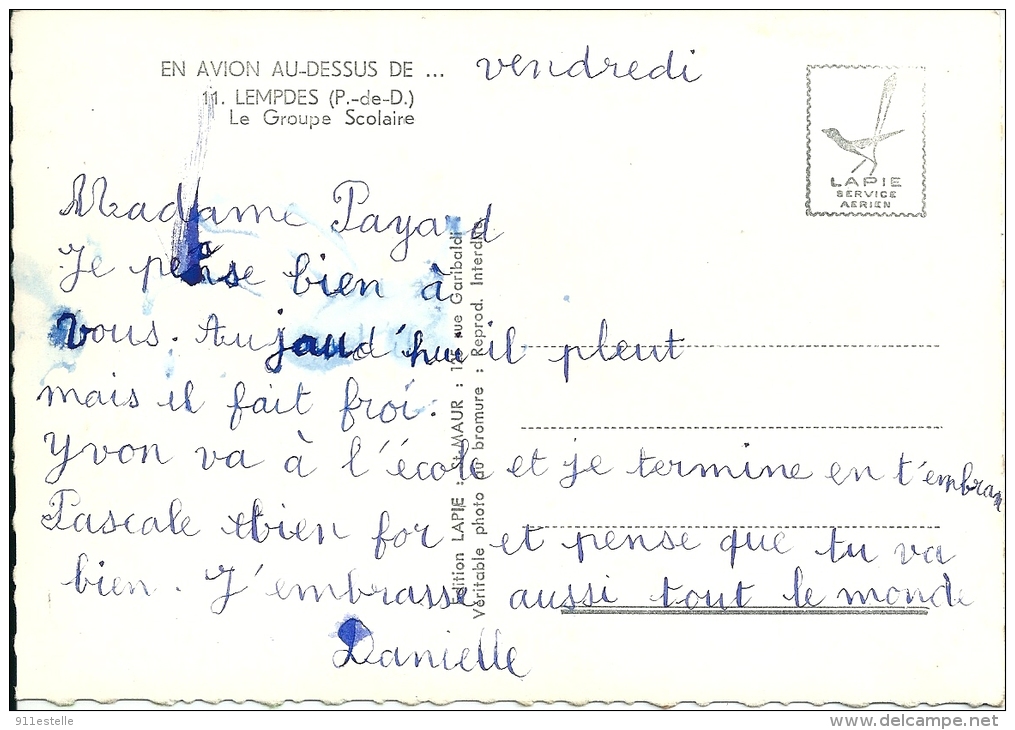 EN AVION AU-DESSUS DE ... vendredi
11. LEMPDES (P.-de-D.)
Le Groupe Scolaire
LAPIE
SERVICE
AERIEN
Madame Payard
Je pense bien à
vous. Aujaud'hui il pleut
mais il fait froi.
Yvon va à l'école et je termine en t'embran
Pascale bien for et pense que tu va
bien. J'embrasse aussi tout le monde
Danielle
Edition LAPIE : St-MAUR : rue Garibaldi
Véritable photo au bromure : Reprod. Interdite
911estelle
www.delcampe.net